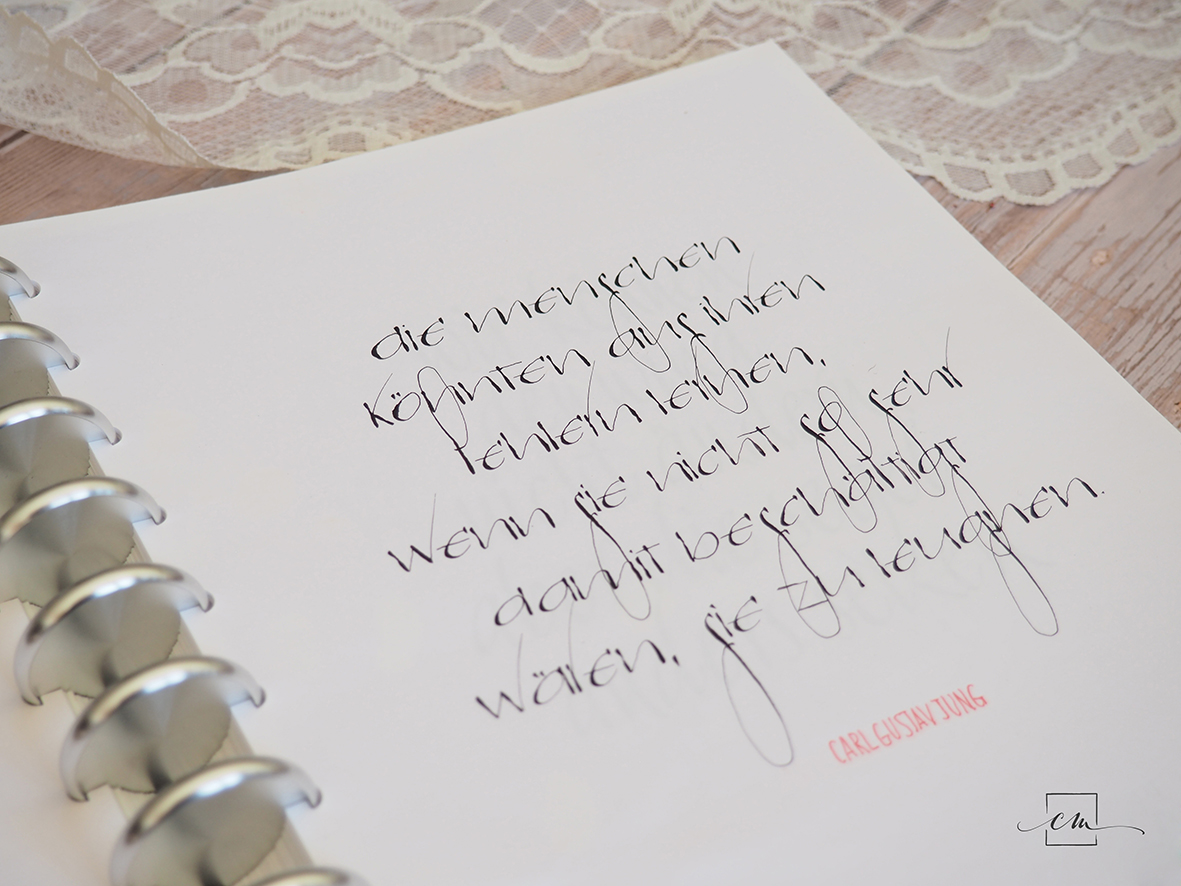 die menschen
könnten aus ihren
fehlern lernen,
wenn sie nicht so sehr
damit beschäftigt
wären, sie zu leugnen.
CARL GUSTAV JUNG
cm